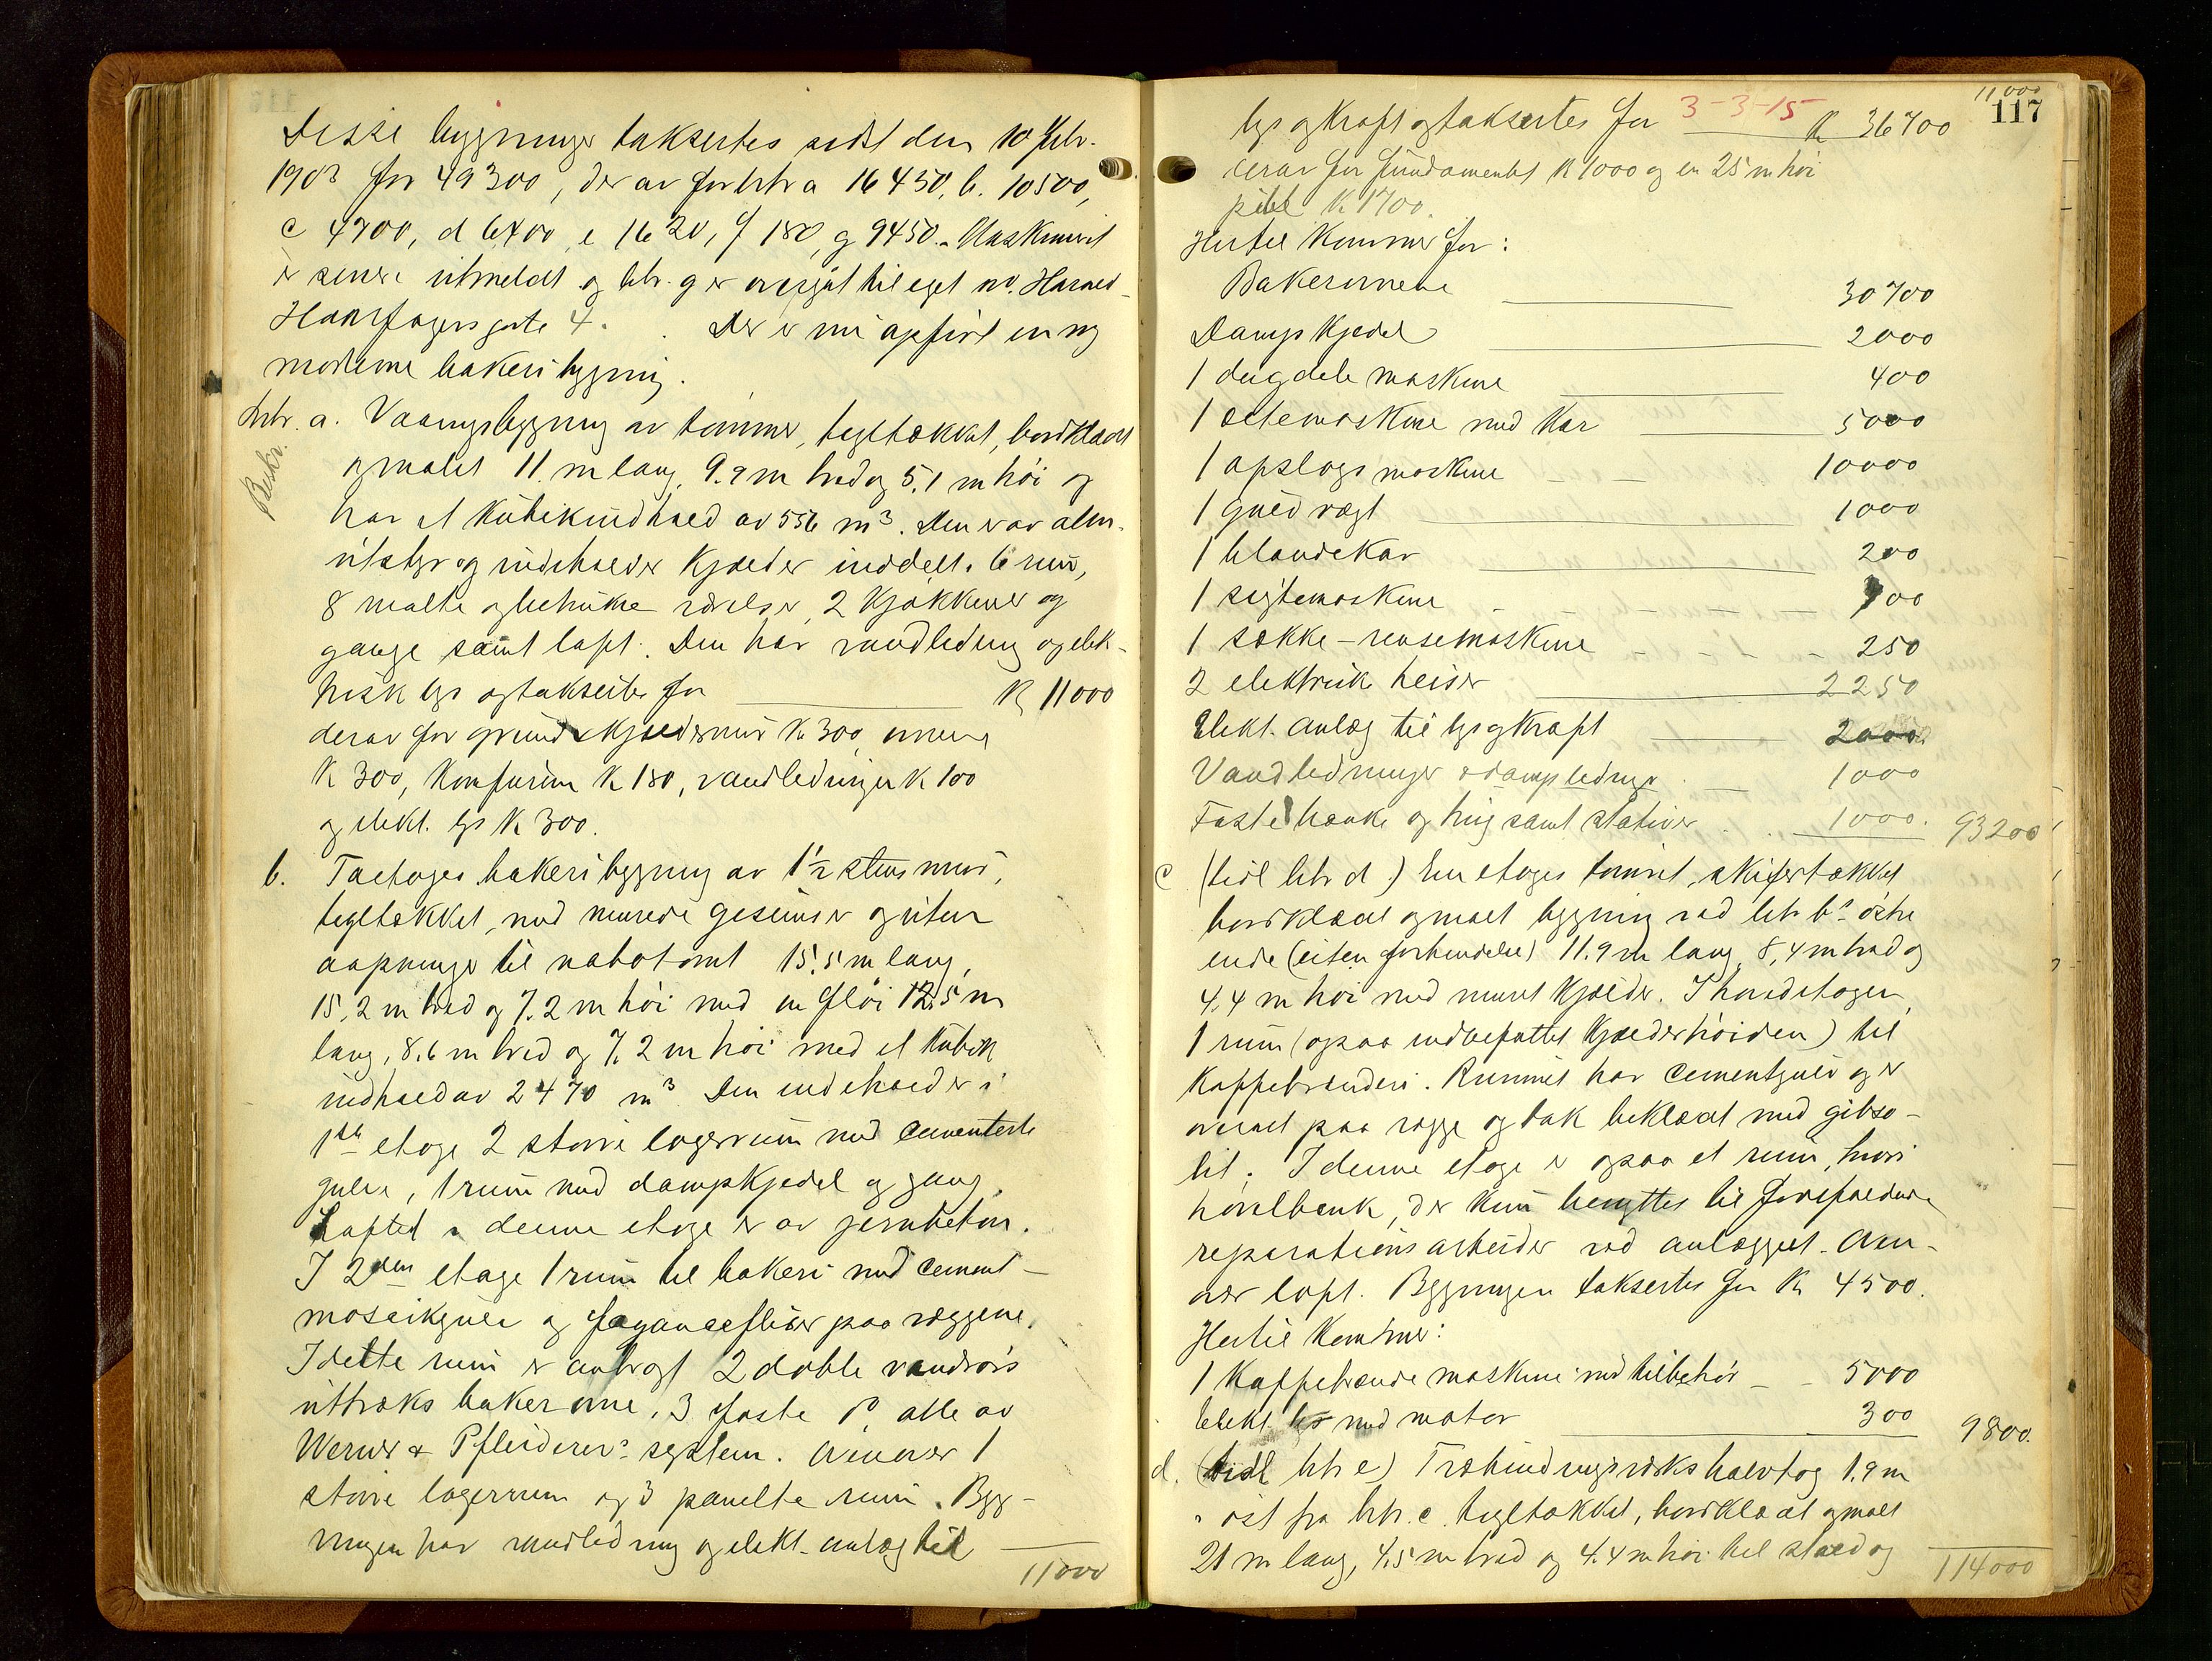 Disse bygninger taksertes sidst den 10 febr.
1903 for 49300, derav for litr a 16450, b. 10500,
c 4700, d 6400, e 1620, f 180, g 9450. Maskineriet
er senere utmeldt og litr. g er overgåt til eget nr. Harald
Haarfagers gate 4. Der er nu opført en ny
moderne bakeribygning.
Beskr.
Litr. a. Vaaningsbygning av tømmer, tegltækket, bordklædt
og malet 11. m lang, 9.9 m bred og 5.1 m høi og
har et kubikindhold av 556 m³. Den er av alm.
utstyr og indeholder kjælder inddelt i 6 rum,
8 malte og betrukne værelser, 2 kjøkkener og
gange samt loft. Den har vandledning og elek-
trisk lys og taksertes for K 11000
derav for grund & kjældermur K 300, ovnene
K 300, komfurene K 180, vandledninger K 100
og elekt. lys K 300.
b. Toetages bakeribygning av 1½ stens mur,
tegltækket, med murede gesimser og uten
aapninger til nabotomt 15.5 m lang,
15,2 m bred og 7.2 m høi med en fløi 12.5 m
lang, 8.6 m bred og 7,2 m høi med et kubik
indhold av 2470 m³ Den indeholder i
1ste etage 2 større lagerrum med cementerte
gulve, 1 rum med dampkjedel og gang,
Loftet i denne etage er av jernbeton.
I 2den etage 1 rum til bakeri med cement-
mosaikgulv og fayancefliser paa væggene.
I dette rum er anbragt 2 doble vandrørs
uttræks bakerovne, 3 faste do alle av
Werner & Pfleiderers system. Ovenover 1
større lagerrum og 3 panelte rum. Byg-
ningen har vandledning og elekt. anlæg til
11000
11000
117
lys og kraft og taksertes for 3-3-15 K 36700
derav for fundamentet K 1000 og en 25 m høi
pibe K 1700.
Hertil kommer for:
Bakerovnene 30700
Dampkjedel 2000
1 deigdele maskine 400
1 æltemaskine med kar 5000
1 opslagsmaskine 10000
1 gulvvægt 1000
1 blandekar 200
1 sigtemaskine 700
1 sække-rensemaskine 250
2 elektriske heiser 2250
Elekt. anlæg til lys og kraft 2000
Vandledninger & dampledninger 1000
Faste bænke og trug samt stativer 1000. 93200
c (tidl litr d) En etages tømret, skifertækket
bordklædt og malt bygning ved litr b's østre
ende (uten forbindelse) 11.9 m lang, 8,4 m bred og
4.4 m høi med muret kjælder. I hovedetagen,
1 rum (ogsaa indbefattet kjælderhøiden) til
kaffebrænderi. Rummet har cementgulv og er
overalt paa vægge og tak beklædt med gibso-
lit. I denne etage er ogsaa et rum, hvori
høvelbænk, der kun benyttes til forefaldende
reparationsarbeider ved anlægget. Oven-
over loft. Bygningen taksertes for K 4500.
Hertil kommer:
1 kaffebrænde maskine med tilbehør 5000
elekt. lys med motor 300 9800.
d. (tidl litr e) Træbindingsverks halvtag 1.9 m
øst fra litr. c. tegltækket, bordklædt og malt
21 m lang, 4,5 m bred og 4.4 m høi til stald og
114000